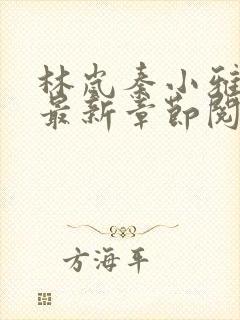 林岚秦小雅
最新章节阅
方海平